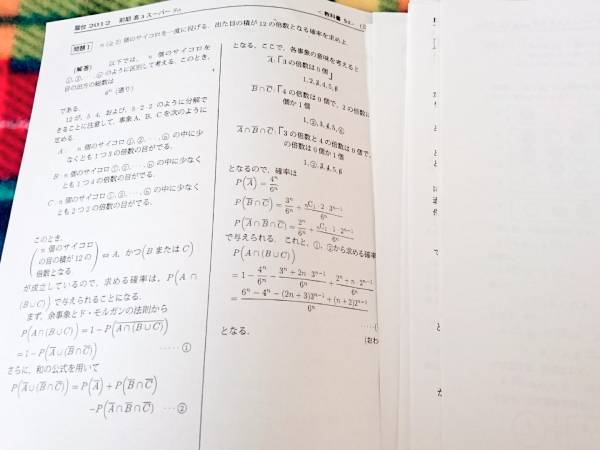 駿台 2012 前期 高3スーパー
<教科書 S4.
問題1 n(≧2)個のサイコロを一度に投げる.出た目の積が12の倍数となる確率を求めよ
(解答) 以下では, n 個のサイコロを
①,②,…,ⓝ のように区別して考える.このとき,
目の出方の総数は
6ⁿ (通り)
である.
12が, 3·4, および, 3·2·2 のように分解で
きることに注意して,事象A, B, Cを次のように
定める.
A: n 個のサイコロ①,②,…,ⓝ の中に少
なくとも1つ3の倍数の目がでる.
B: n 個のサイコロ①,②,…,ⓝ の中に少なく
とも1つ4の倍数の目がでる.
C: n 個のサイコロ①,②,…,ⓝ の中に少なく
とも2つ2の倍数の目がでる.
このとき,
(n 個のサイコロの目の積が12の倍数となる) ⇔ A, かつ(B または C)
が成立しているので,求める確率は, P(A ∩
(B∪C)) で与えられることになる.
まず,余事象とド・モルガンの法則から
P(A∩(B∪C)) = 1−P(\overline{A∩(B∪C)})
= 1−P(\overline{A}∪(\overline{B}∩\overline{C})) ·····①
さらに,和の公式を用いて
P(\overline{A}∪(\overline{B}∩\overline{C})) = P(\overline{A}) + P(\overline{B}∩\overline{C})
−P(\overline{A}∩\overline{B}∩\overline{C}) ···②
となる.ここで,各事象の意味を考えると
\overline{A}:「3の倍数は0個」
1,2,3,4,5,6
\overline{B}∩\overline{C}:「4の倍数は0個で,2の倍数
個か1個
1,②,3,4,5,⑥
\overline{A}∩\overline{B}∩\overline{C}:「3の倍数と4の倍数は0個で,
の倍数は0個か1個
1,②,3,4,5,6
となるので,確率は
P(\overline{A}) = 4ⁿ/6ⁿ
P(\overline{B}∩\overline{C}) = 3ⁿ/6ⁿ + ₙC₁·2·3ⁿ⁻¹/6ⁿ
P(\overline{A}∩\overline{B}∩\overline{C}) = 2ⁿ/6ⁿ + ₙC₁·1·2ⁿ⁻¹/6ⁿ
で与えられる.これと,①,②から求める確率
P(A∩(B∪C))
= 1 − 4ⁿ/6ⁿ − (3ⁿ+2n·3ⁿ⁻¹)/6ⁿ + (2ⁿ+n·2ⁿ⁻¹)/6ⁿ
= (6ⁿ−4ⁿ−(2n+3)3ⁿ⁻¹+(n+2)2ⁿ⁻¹)/6ⁿ
·····(
となる.
(おわ